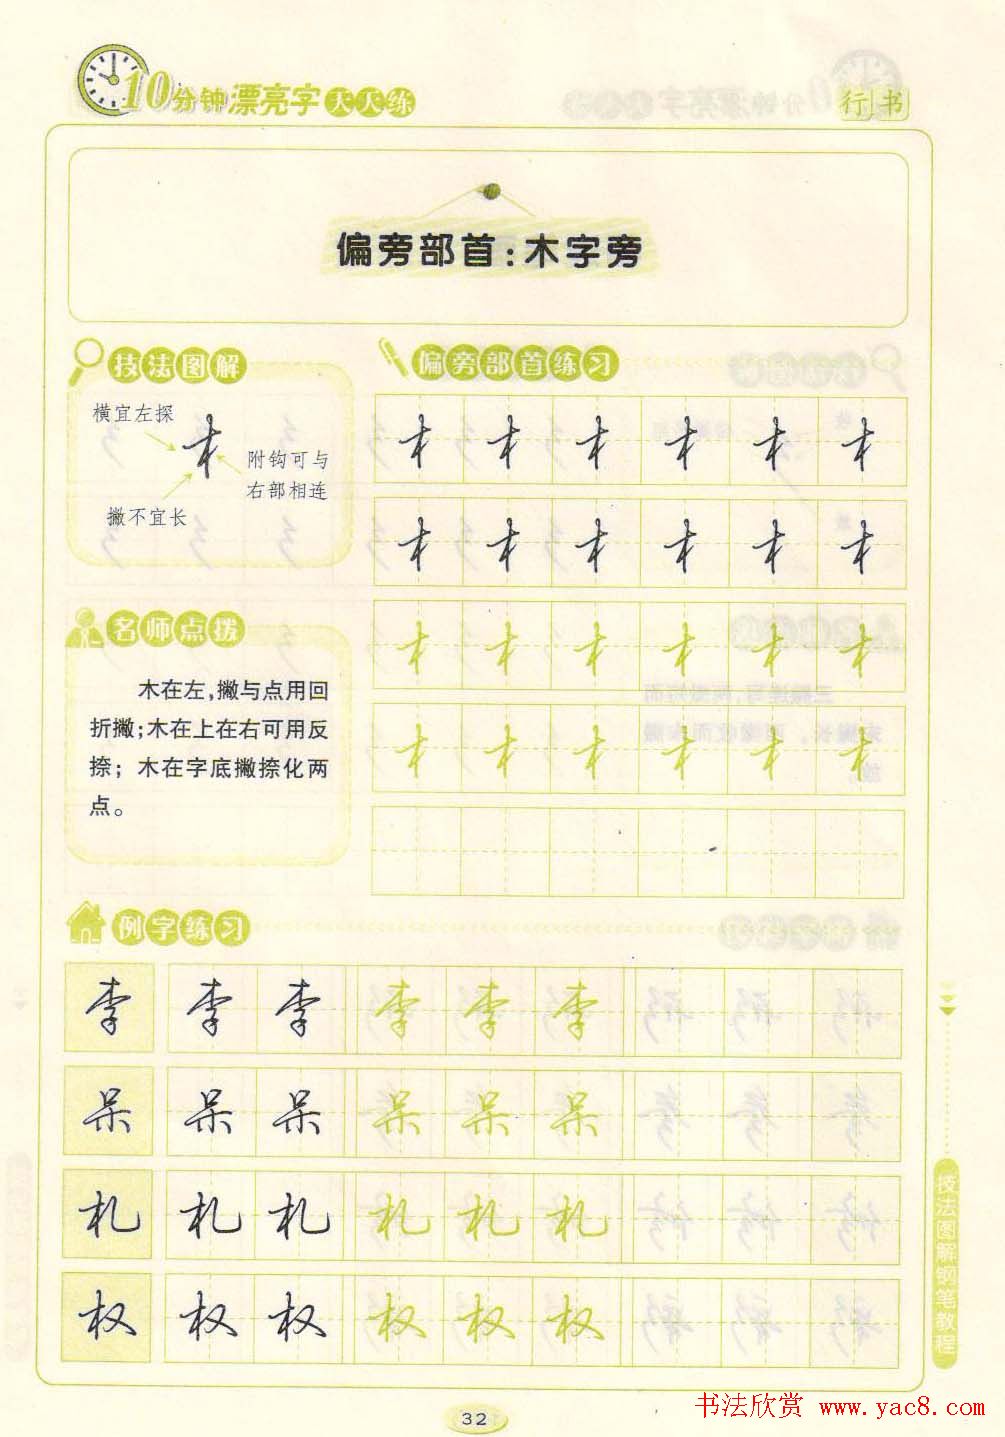 10分钟漂亮字天天练
行书
偏旁部首:木字旁
技法图解
横宜左探
附钩可与
右部相连
撇不宜长
偏旁部首练习
木 木 木 木 木 木
木 木 木 木 木 木
木 木 木 木 木 木
木 木 木 木 木 木
名师点拨
木在左,撇与点用回
折撇;木在上在右可用反
捺;木在字底撇捺化两
点。
例字练习
李 李 李 李 李 李
呆 呆 呆 呆 呆 呆
札 札 札 札 札 札
权 权 权 权 权 权
技法图解钢笔教程
32
书法欣赏 www.yac8.com